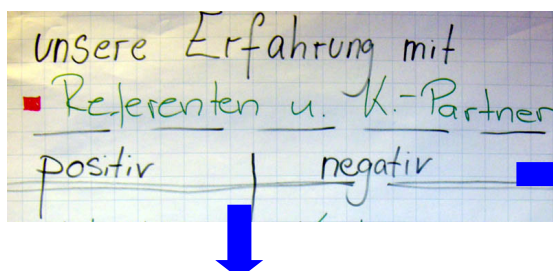 unsere Erfahrung mit
Referenten u. K.-Partner
positiv negativ